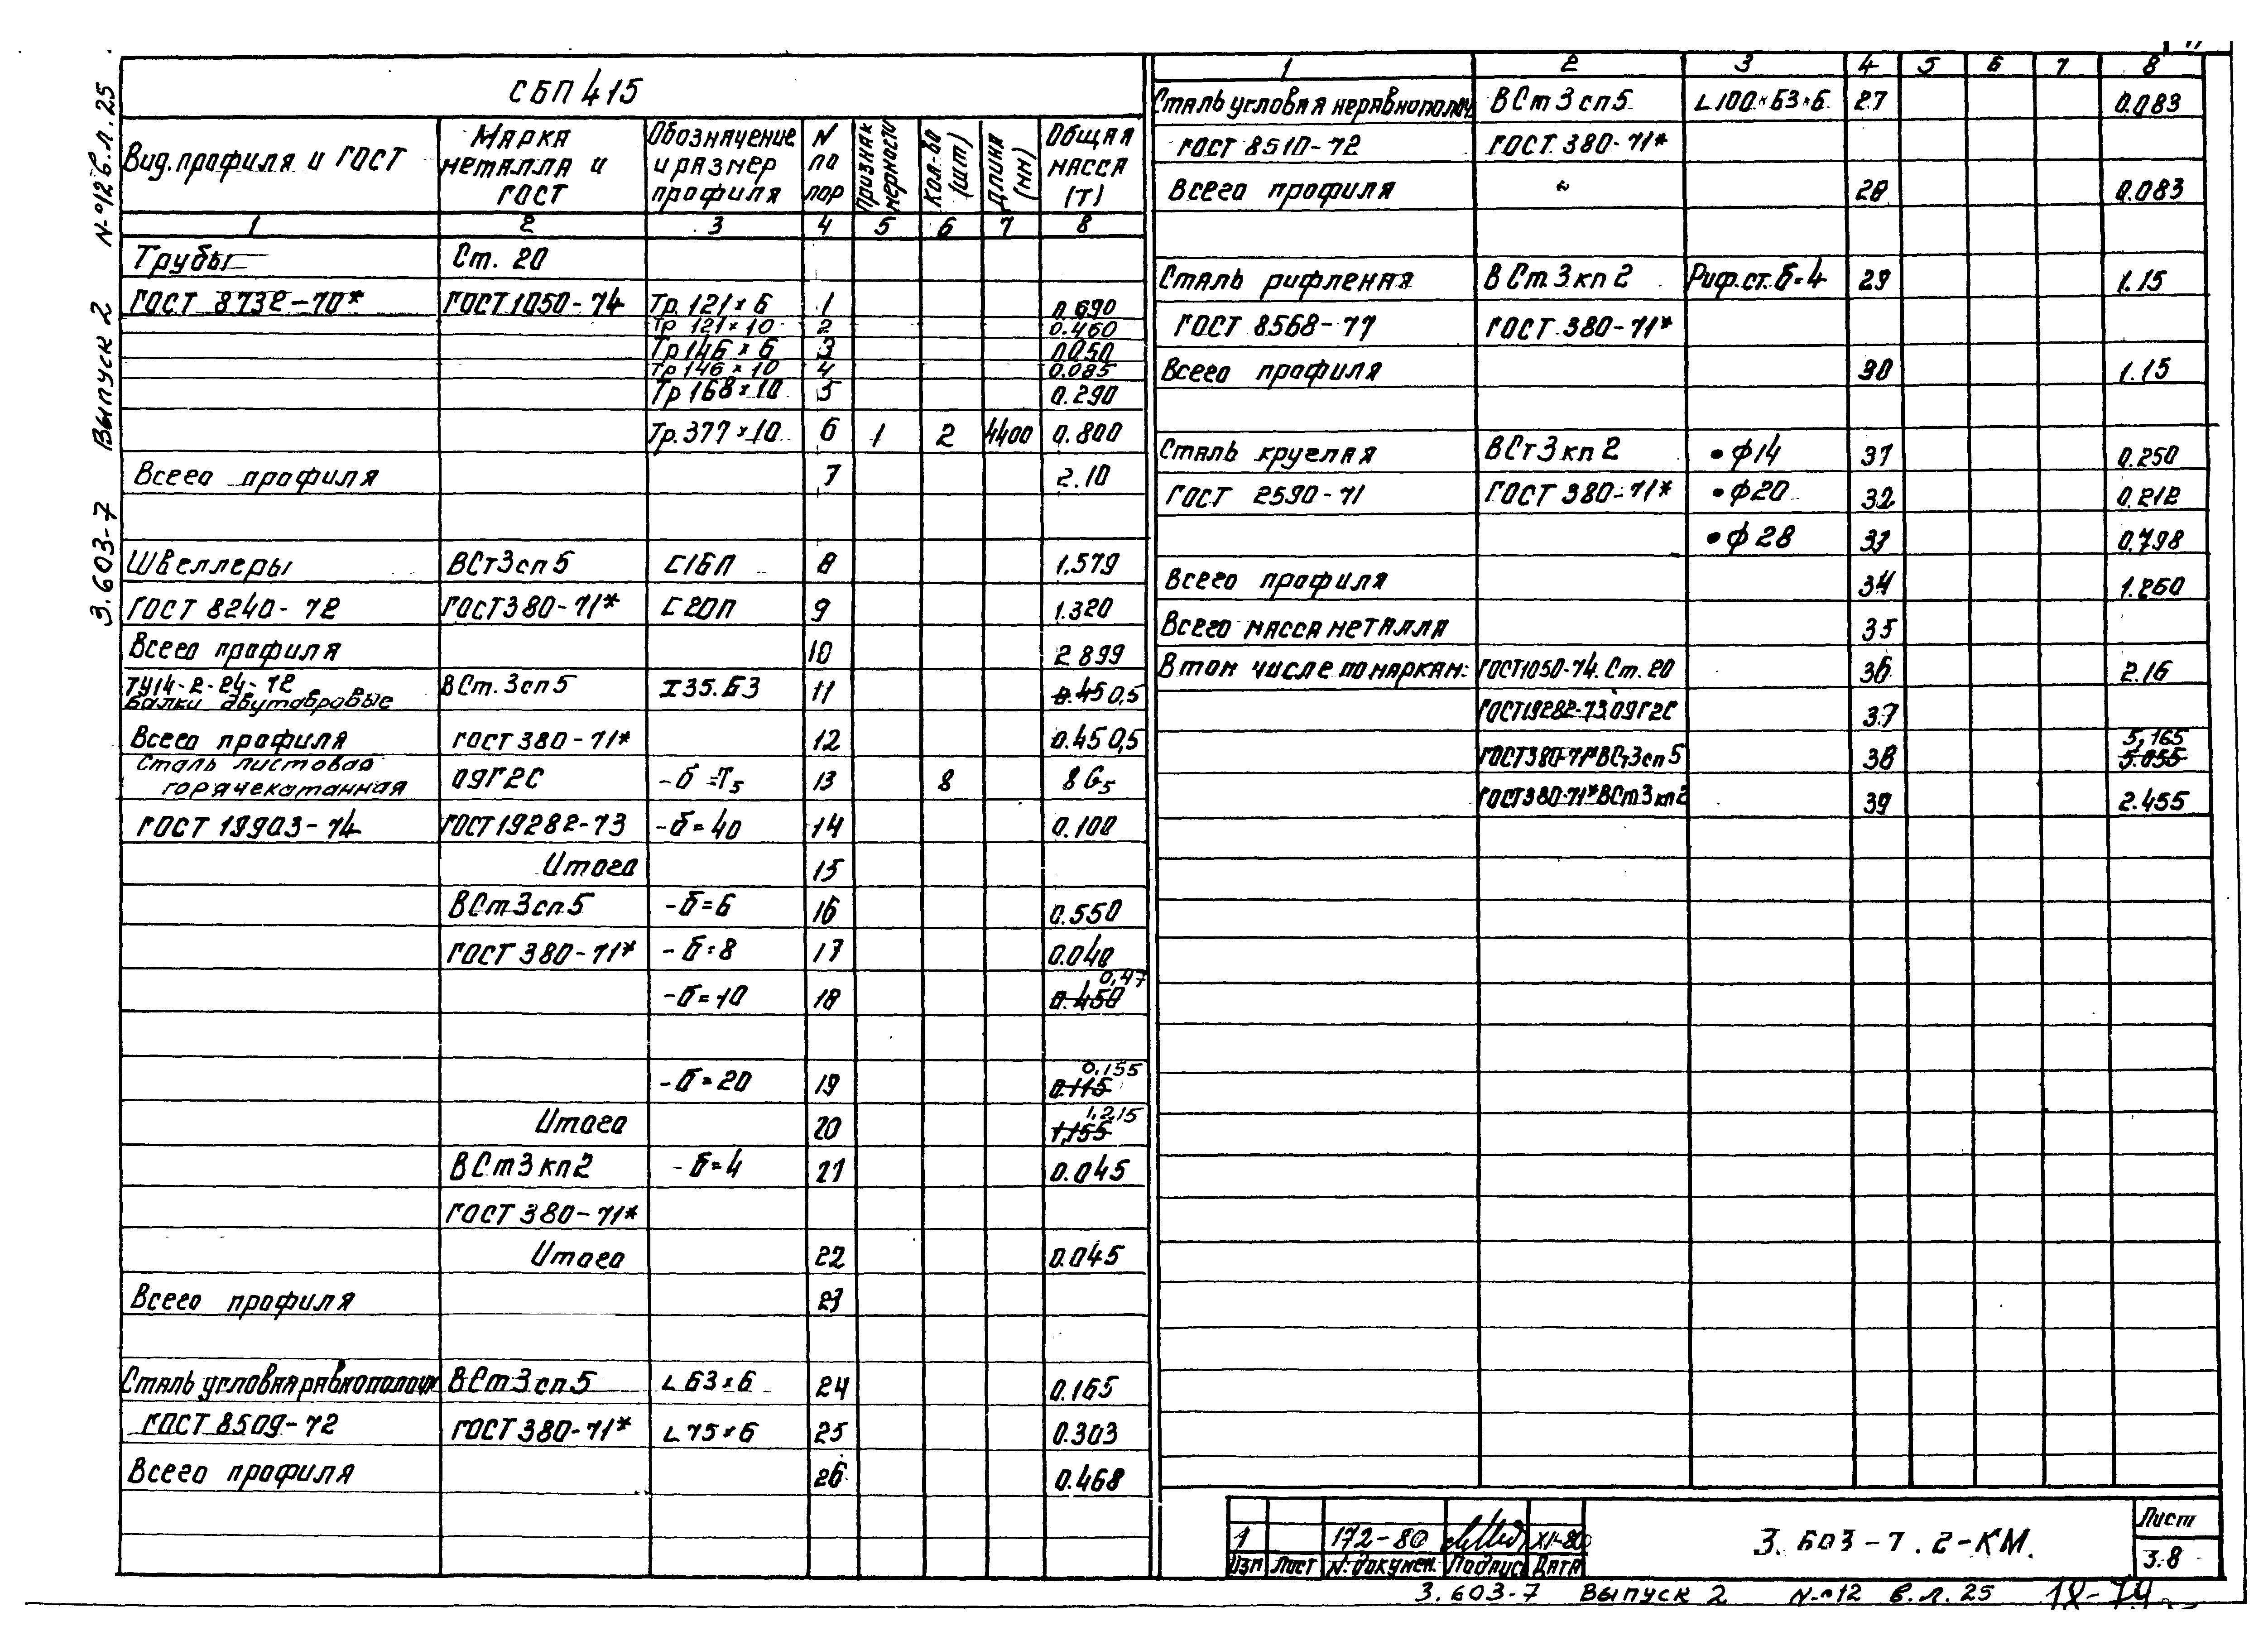 СБП 415
Вид профиля и ГОСТ | Марка металла и ГОСТ | Обозначение и размер профиля | N по пор | Признак мерности | Кол-во (шт) | Длина (мм) | Общая масса (т)
1 2 3 4 5 6 7 8
Трубы Ст. 20
ГОСТ 8732-70* ГОСТ 1050-74 Тр. 121×6 1 0.690
Тр 121×10 2 0.460
Тр 146×6 3 0.050
Тр 146×10 4 0.085
Тр 168×10 5 0.290
Тр. 377×10 6 1 2 4400 0.800
Всего профиля 7 2.10
Швеллеры ВСт3сп5 С16П 8 1.579
ГОСТ 8240-72 ГОСТ 380-71* С20П 9 1.320
Всего профиля 10 2 899
ТУ14-2-24-72
Балки двутавровые ВСт.3сп5 I35.Б3 11 0.45 0,5
Всего профиля ГОСТ 380-71* 12 0.45 0,5
Сталь листовая
горячекатанная 09Г2С 13 8
ГОСТ 19903-74 ГОСТ 19282-73 -б=40 14 0.100
Итого 15
ВСт3сп5 -б=6 16 0.550
ГОСТ 380-71* -б=8 17 0.040
0,47
-б=10 18 0.450
0,155
-б=20 19 0.115
1,215
Итого 20 1,155
ВСт3кп2 -б=4 21 0.045
ГОСТ 380-71*
Итого 22 0.045
Всего профиля 23
Сталь угловая равнополоч ВСт3сп5 L 63×6 24 0.165
ГОСТ 8509-72 ГОСТ 380-71* L 75×6 25 0.303
Всего профиля 26 0.468
1 2 3 4 5 6 7 8
Сталь угловая неравнополоч ВСт3сп5 L100×63×6 27 0.083
ГОСТ 8510-72 ГОСТ 380-71*
Всего профиля " 28 0.083
Сталь рифленая ВСт.3кп2 Риф.ст. б=4 29 1.15
ГОСТ 8568-77 ГОСТ 380-71*
Всего профиля 30 1.15
Сталь круглая ВСт3кп2 •ф14 31 0.250
ГОСТ 2590-71 ГОСТ 380-71* •ф20 32 0.212
•ф28 33 0.798
Всего профиля 34 1.260
Всего масса металла 35
В том числе по маркам: ГОСТ1050-74. Ст. 20 36 2.16
ГОСТ19282-73 09Г2С 37
5,165
ГОСТ380-71*ВСт3сп5 38 5.055
ГОСТ380-71*ВСт3кп2 39 2.455
1 172-80 XI-80
Изм Лист N.докумен. Подпис Дата
3.603-7.2-КМ.
Лист
3.8
3.603-7 Выпуск 2 N-12 в.л.25
3.603-7 Выпуск 2 N°12 в.л.25